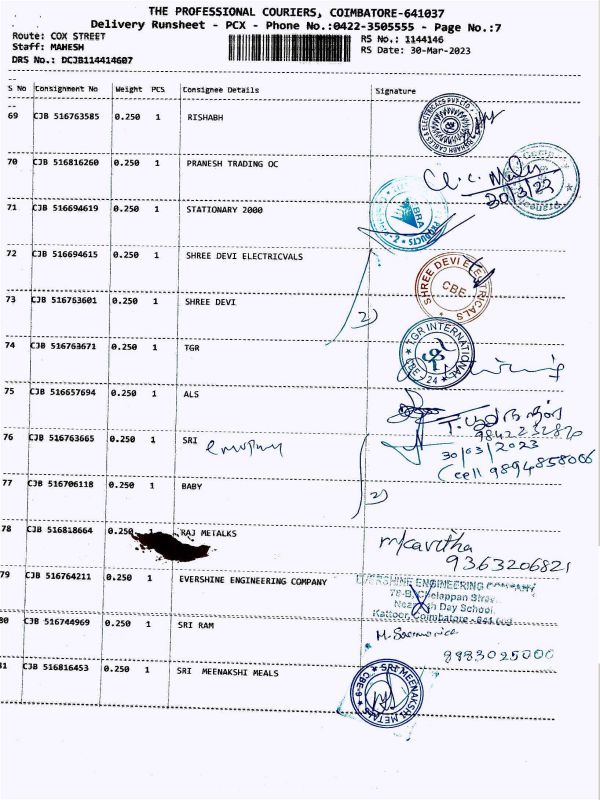 THE PROFESSIONAL COURIERS, COIMBATORE-641037
Delivery Runsheet - PCX - Phone No.:0422-3505555 - Page No.:7
Route: COX STREET
Staff: MAHESH
DRS No.: DCJB114414607
RS No.: 1144146
RS Date: 30-Mar-2023
S No Consignment No Weight PCS Consignee Details Signature
69 CJB 516763585 0.250 1 RISHABH
70 CJB 516816260 0.250 1 PRANESH TRADING OC
30/3/23
71 CJB 516694619 0.250 1 STATIONARY 2000
72 CJB 516694615 0.250 1 SHREE DEVI ELECTRICVALS
SHREE DEVI ELECTRICALS
CBE
73 CJB 516763601 0.250 1 SHREE DEVI
2)
74 CJB 516763671 0.250 1 TGR
TGR INTERNATIONAL
75 CJB 516657694 0.250 1 ALS
76 CJB 516763665 1 SRI
30/03/2023
Cell 9894858006
77 CJB 516706118 0.250 1 BABY
2)
78 CJB 516818664 0.250 1 RAJ METALKS
M Kavitha
9363206821
79 CJB 516764211 0.250 1 EVERSHINE ENGINEERING COMPANY
EVERSHINE ENGINEERING COMPANY
Day School,
Kattoor, Coimbatore
80 CJB 516744969 0.250 1 SRI RAM
81 CJB 516816453 0.250 1 SRI MEENAKSHI MEALS
SRI MEENAKSHI METALS
CBE-9